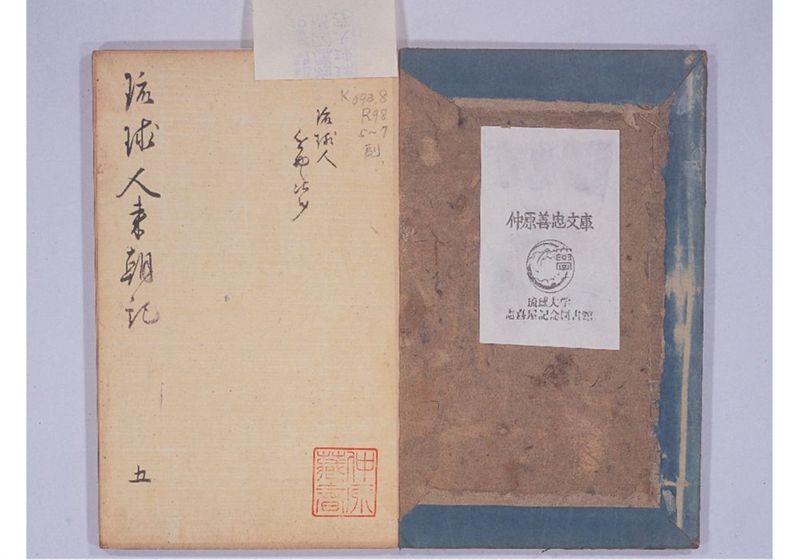 仲原善忠文庫
琉球大学
志喜屋記念図書館
K093.8
R98
5~7
副
琉球人
琉球人来朝記
五
仲原
蔵書